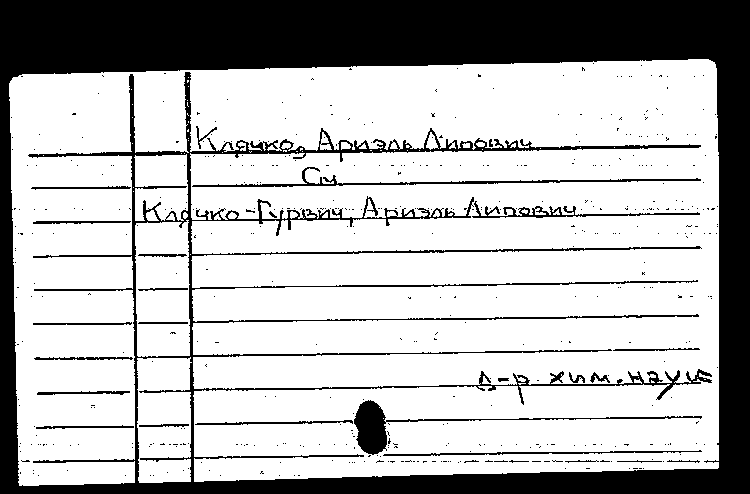 Клячко, Ариэль Липович
См.
Клячко-Гурвич, Ариэль Липович
д-р хим. наук